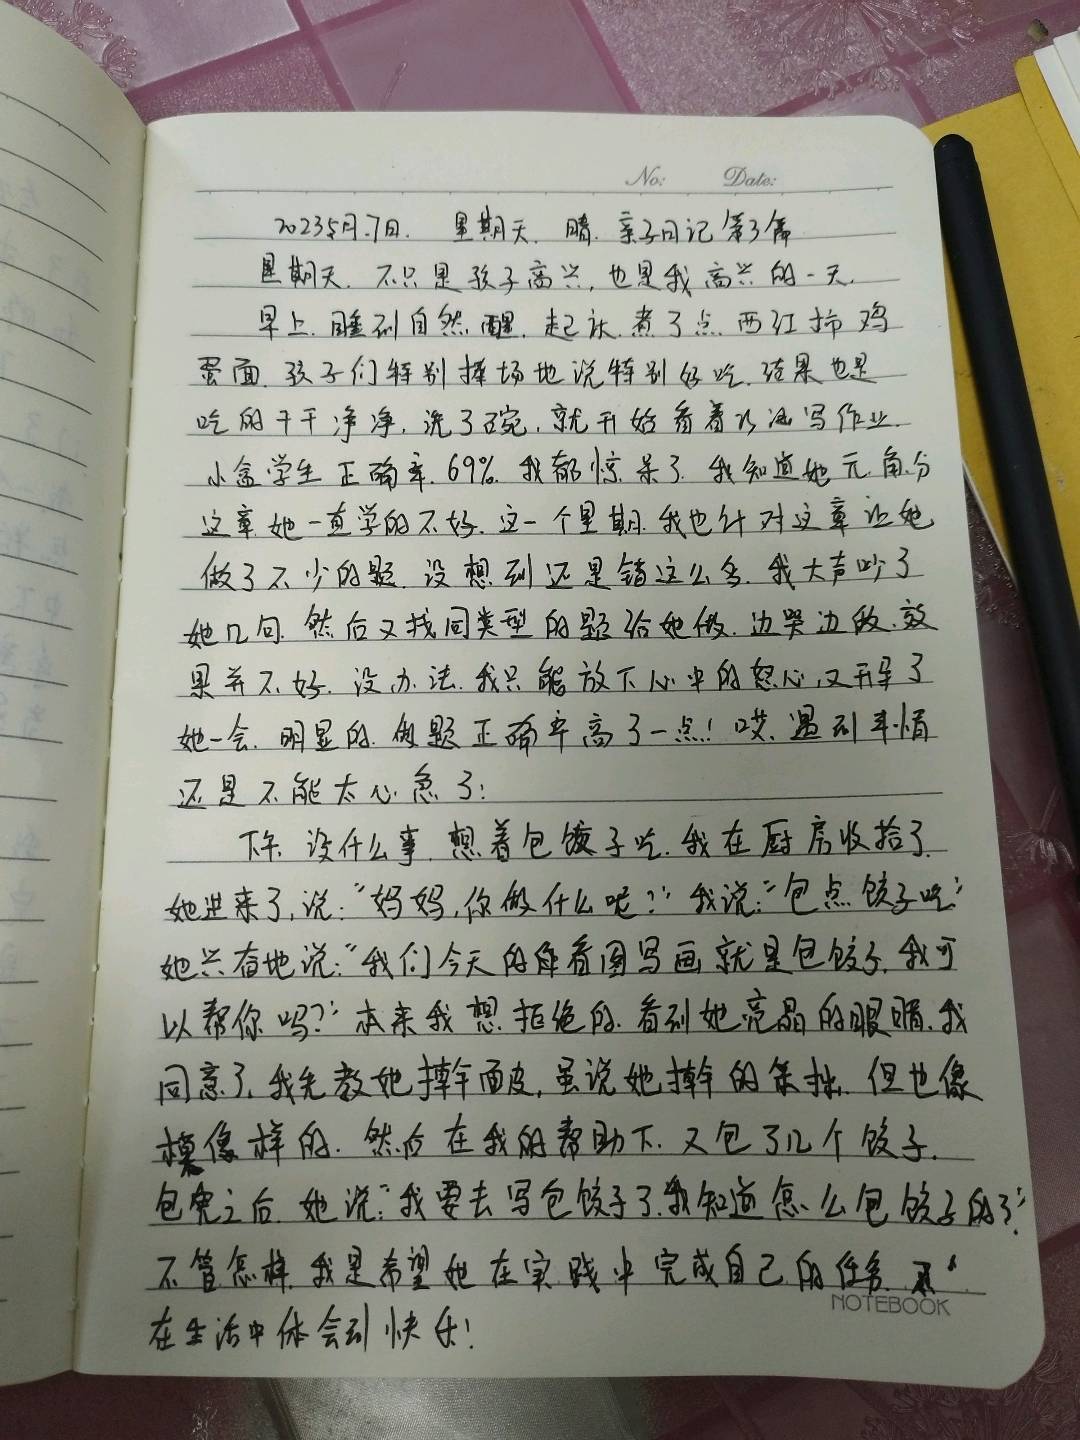 No: Date:
2023年5月.7日. 星期天. 晴. 亲子日记第3篇
星期天. 不只是孩子高兴, 也是我高兴的一天.
早上. 睡到自然醒. 起床. 煮了点西红柿鸡
蛋面. 孩子们特别捧场地说特别好吃. 结果也是
吃的干干净净. 洗了碗. 就开始看着 写作业.
小盒学生正确率. 69%. 我都惊呆了. 我知道她元.角.分
这章她一直学的不好. 这一个星期. 我也针对这章让她
做了不少的题. 没想到还是错这么多. 我大声吵了
她几句. 然后又找同类型的题给她做. 边哭边做. 效
果并不好. 没办法. 我只能放下心中的怒心, 又开导了
她一会. 明显的. 做题正确率高了一点! 哎. 遇到事情
还是不能太心急了:
下午. 没什么事. 想着包饺子吃. 我在厨房收拾了.
她进来了, 说:“妈妈, 你做什么呢?”我说:“包点饺子吃”
她兴奋地说:“我们今天的 看图写画就是包饺子. 我可
以帮你吗?”本来我想拒绝的. 看到她亮晶的眼睛. 我
同意了. 我先教她擀面皮, 虽说她擀的笨拙. 但也像
模像样的. 然后在我的帮助下. 又包了几个饺子.
包完之后. 她说:“我要去写包饺子了. 我知道怎么包饺子的了.”
不管怎样. 我是希望她在实践中完成自己的任务.
NOTEBOOK
在生活中体会到快乐!